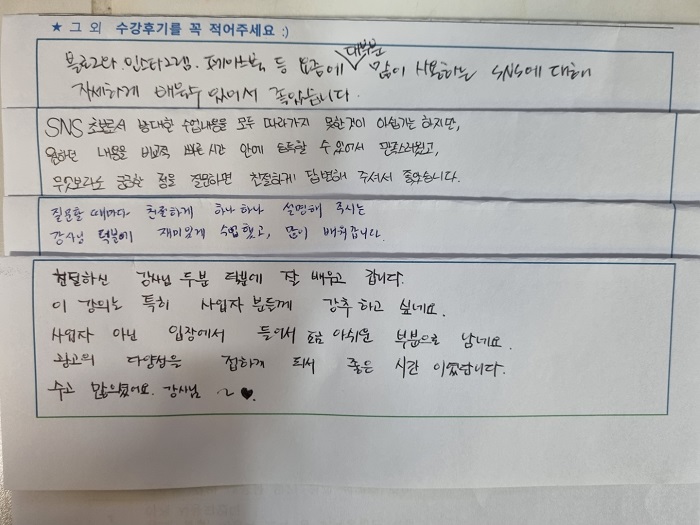 ★ 그 외 수강후기를 꼭 적어주세요 :)
블로그와 인스타그램. 페이스북 등 요즘에 대부분 많이 사용하는 SNS에 대해
자세하게 배울수 있어서 좋았습니다.
SNS 초보로서 방대한 수업내용을 모두 따라가지 못한것이 아쉽기는 하지만,
원하던 내용을 비교적 빠른시간 안에 습득할 수 있어서 만족스러웠고,
무엇보다도 궁금한 점을 질문하면 친절하게 답변해 주셔서 좋았습니다.
질문할 때마다 친절하게 하나하나 설명해 주시는
강사님 덕분에 재미있게 수업했고, 많이 배워갑니다.
친절하신 강사님 두분 덕분에 잘 배우고 갑니다.
이 강의는 특히 사업자 분들께 강추 하고 싶네요.
사업자 아닌 입장에서 들어서 조금 아쉬운 부분으로 남네요.
광고의 다양성을 접하게 되서 좋은 시간 이었답니다.
수고 많으셨어요. 강사님 ~ ♥.